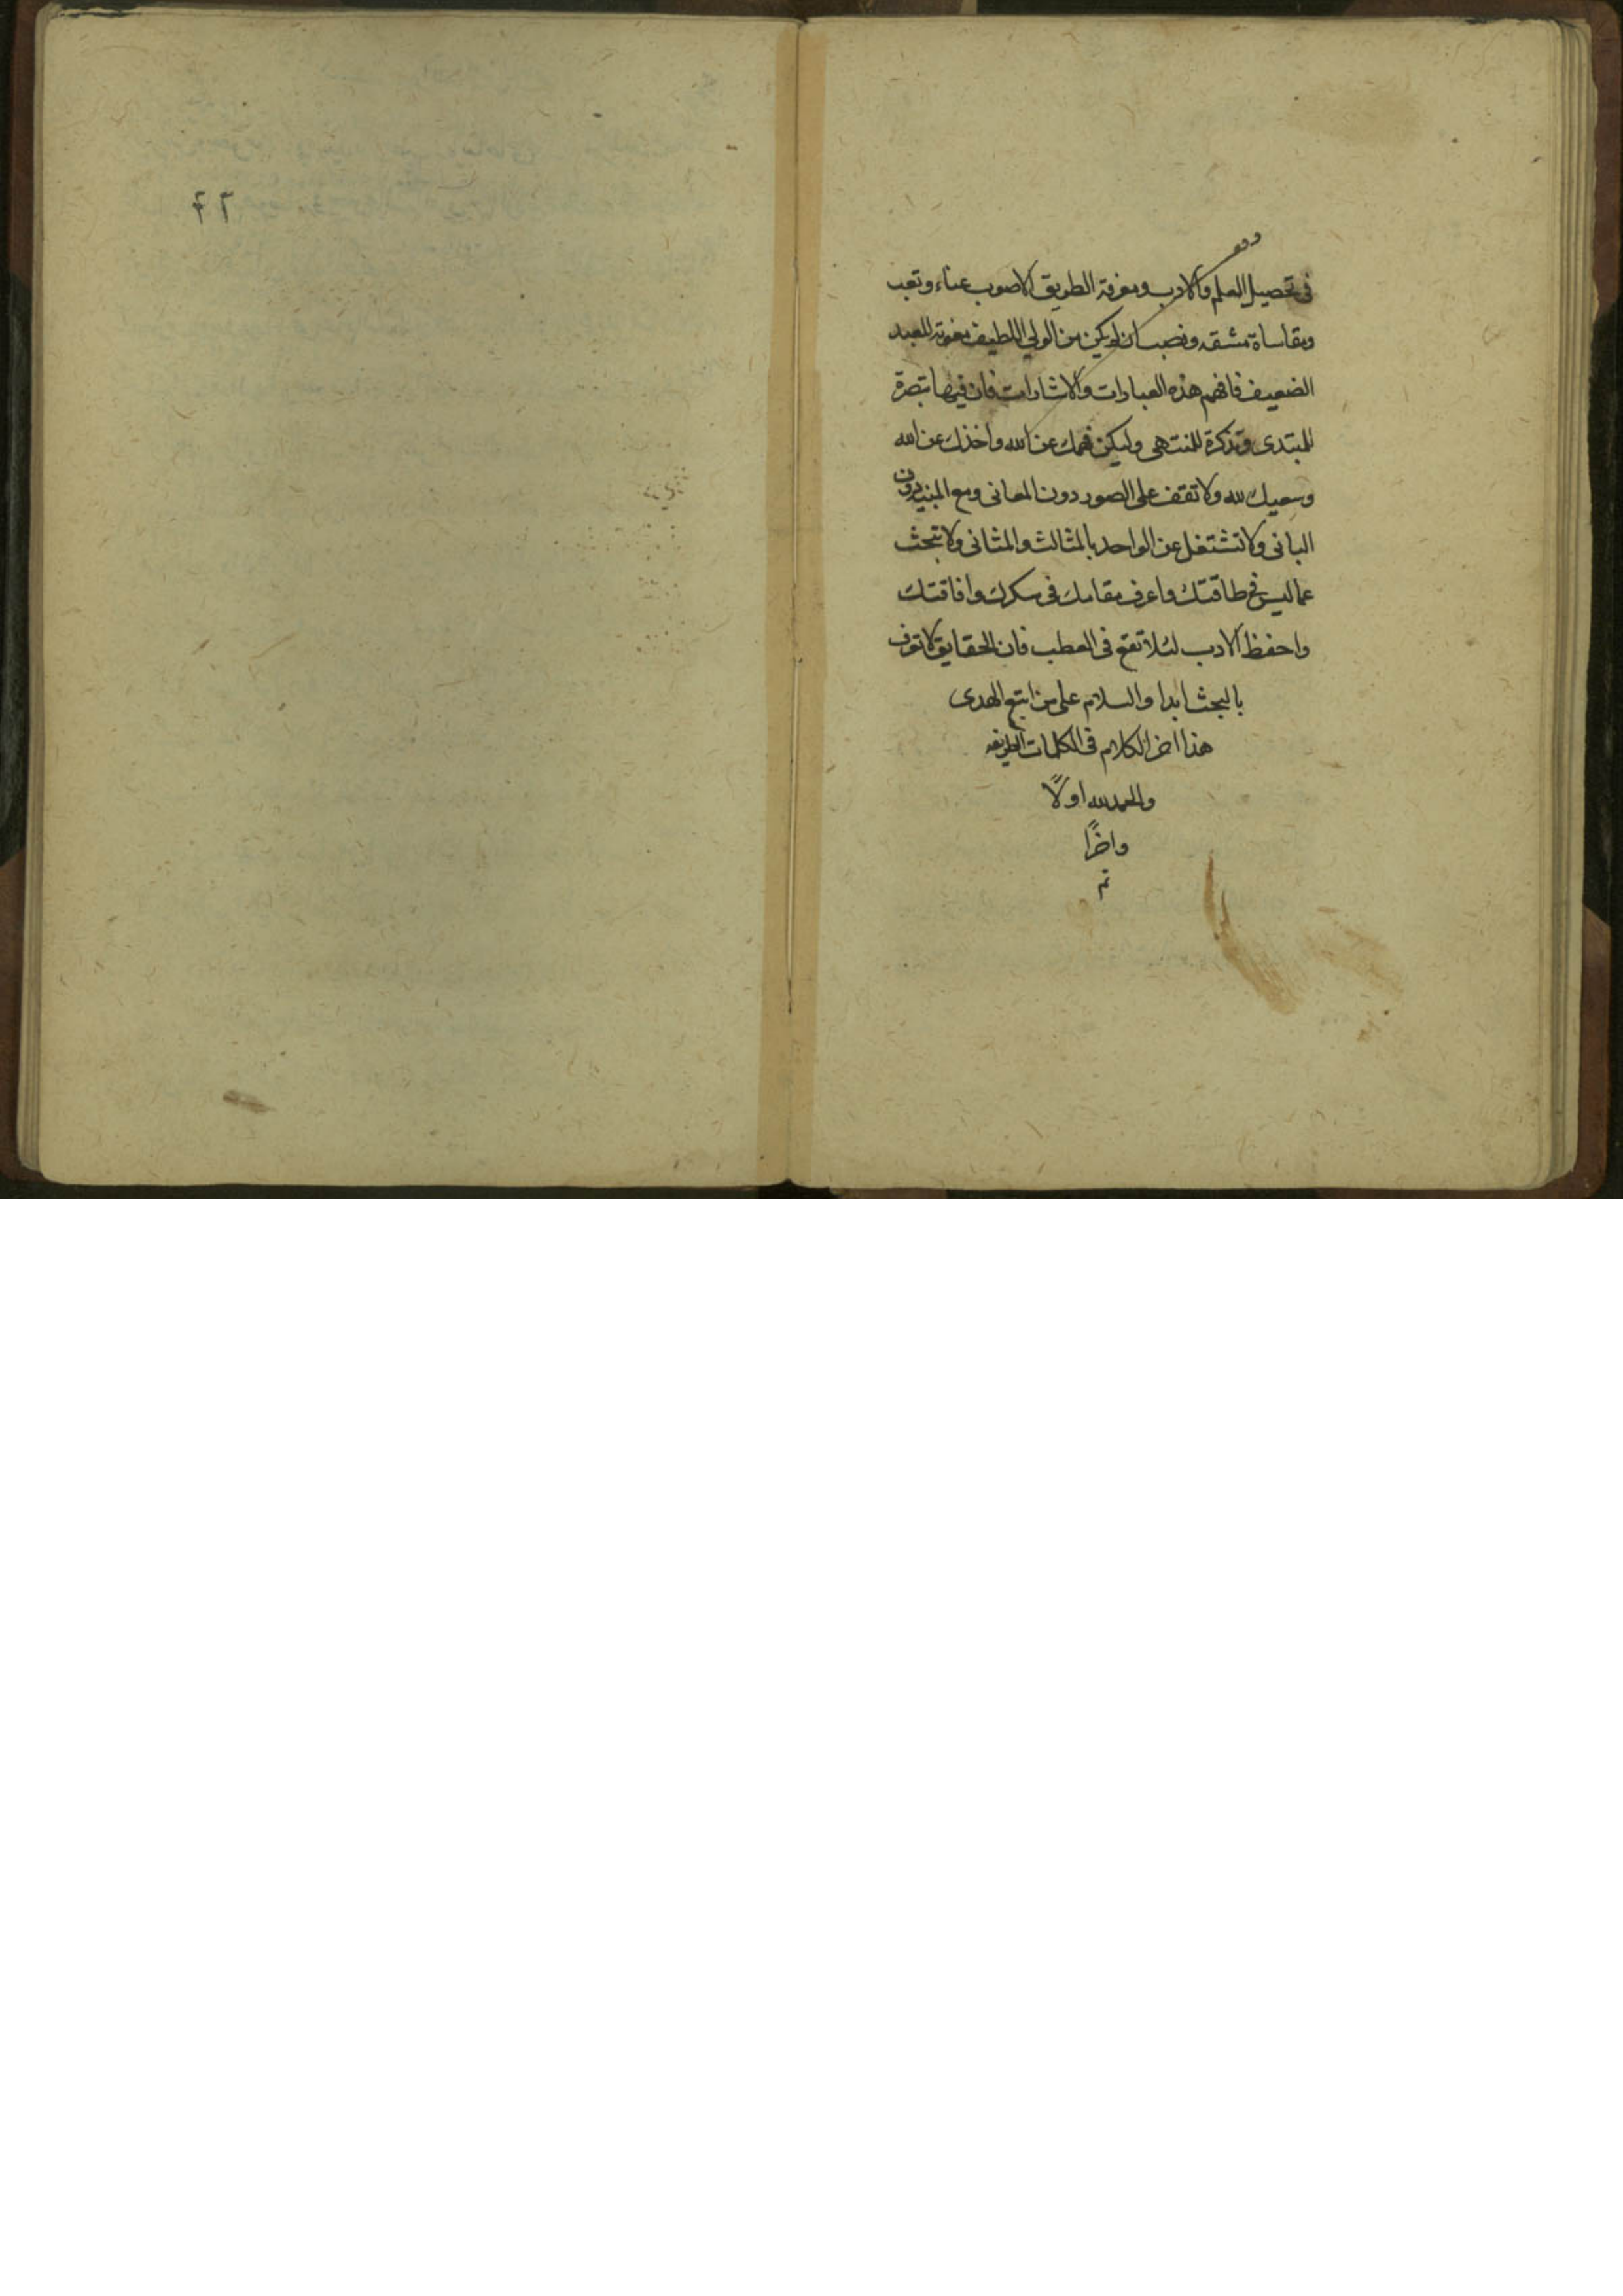 في تحصيل العلم والادب ومعرفة الطريق الاصوب عناء وتعب
ومقاساة مشقه ونصب ان لم يكن من الولي اللطيف معونة للعبد
الضعيف فافهم هذه العبارات والاشارات فان فيها تبصرة
للمبتدى وتذكرة للمنتهى وليكن فهمك عن الله واخذك عن الله
وسعيك لله ولا تقف على الصور دون المعانى ومع المبنى دون
البانى ولا تشتغل عن الواحد بالمثالث والمثانى ولا تبحث
عما ليس في طاقتك واعرف مقامك فى سكرك وافاقتك
واحفظ الادب لئلا تقع فى العطب فان الحقايق لا تعرف
بالبحث ابدا والسلام على من اتبع الهدى
هذا اخر الكلام فى الكلمات
والحمد لله اولاً
واخراً
تم